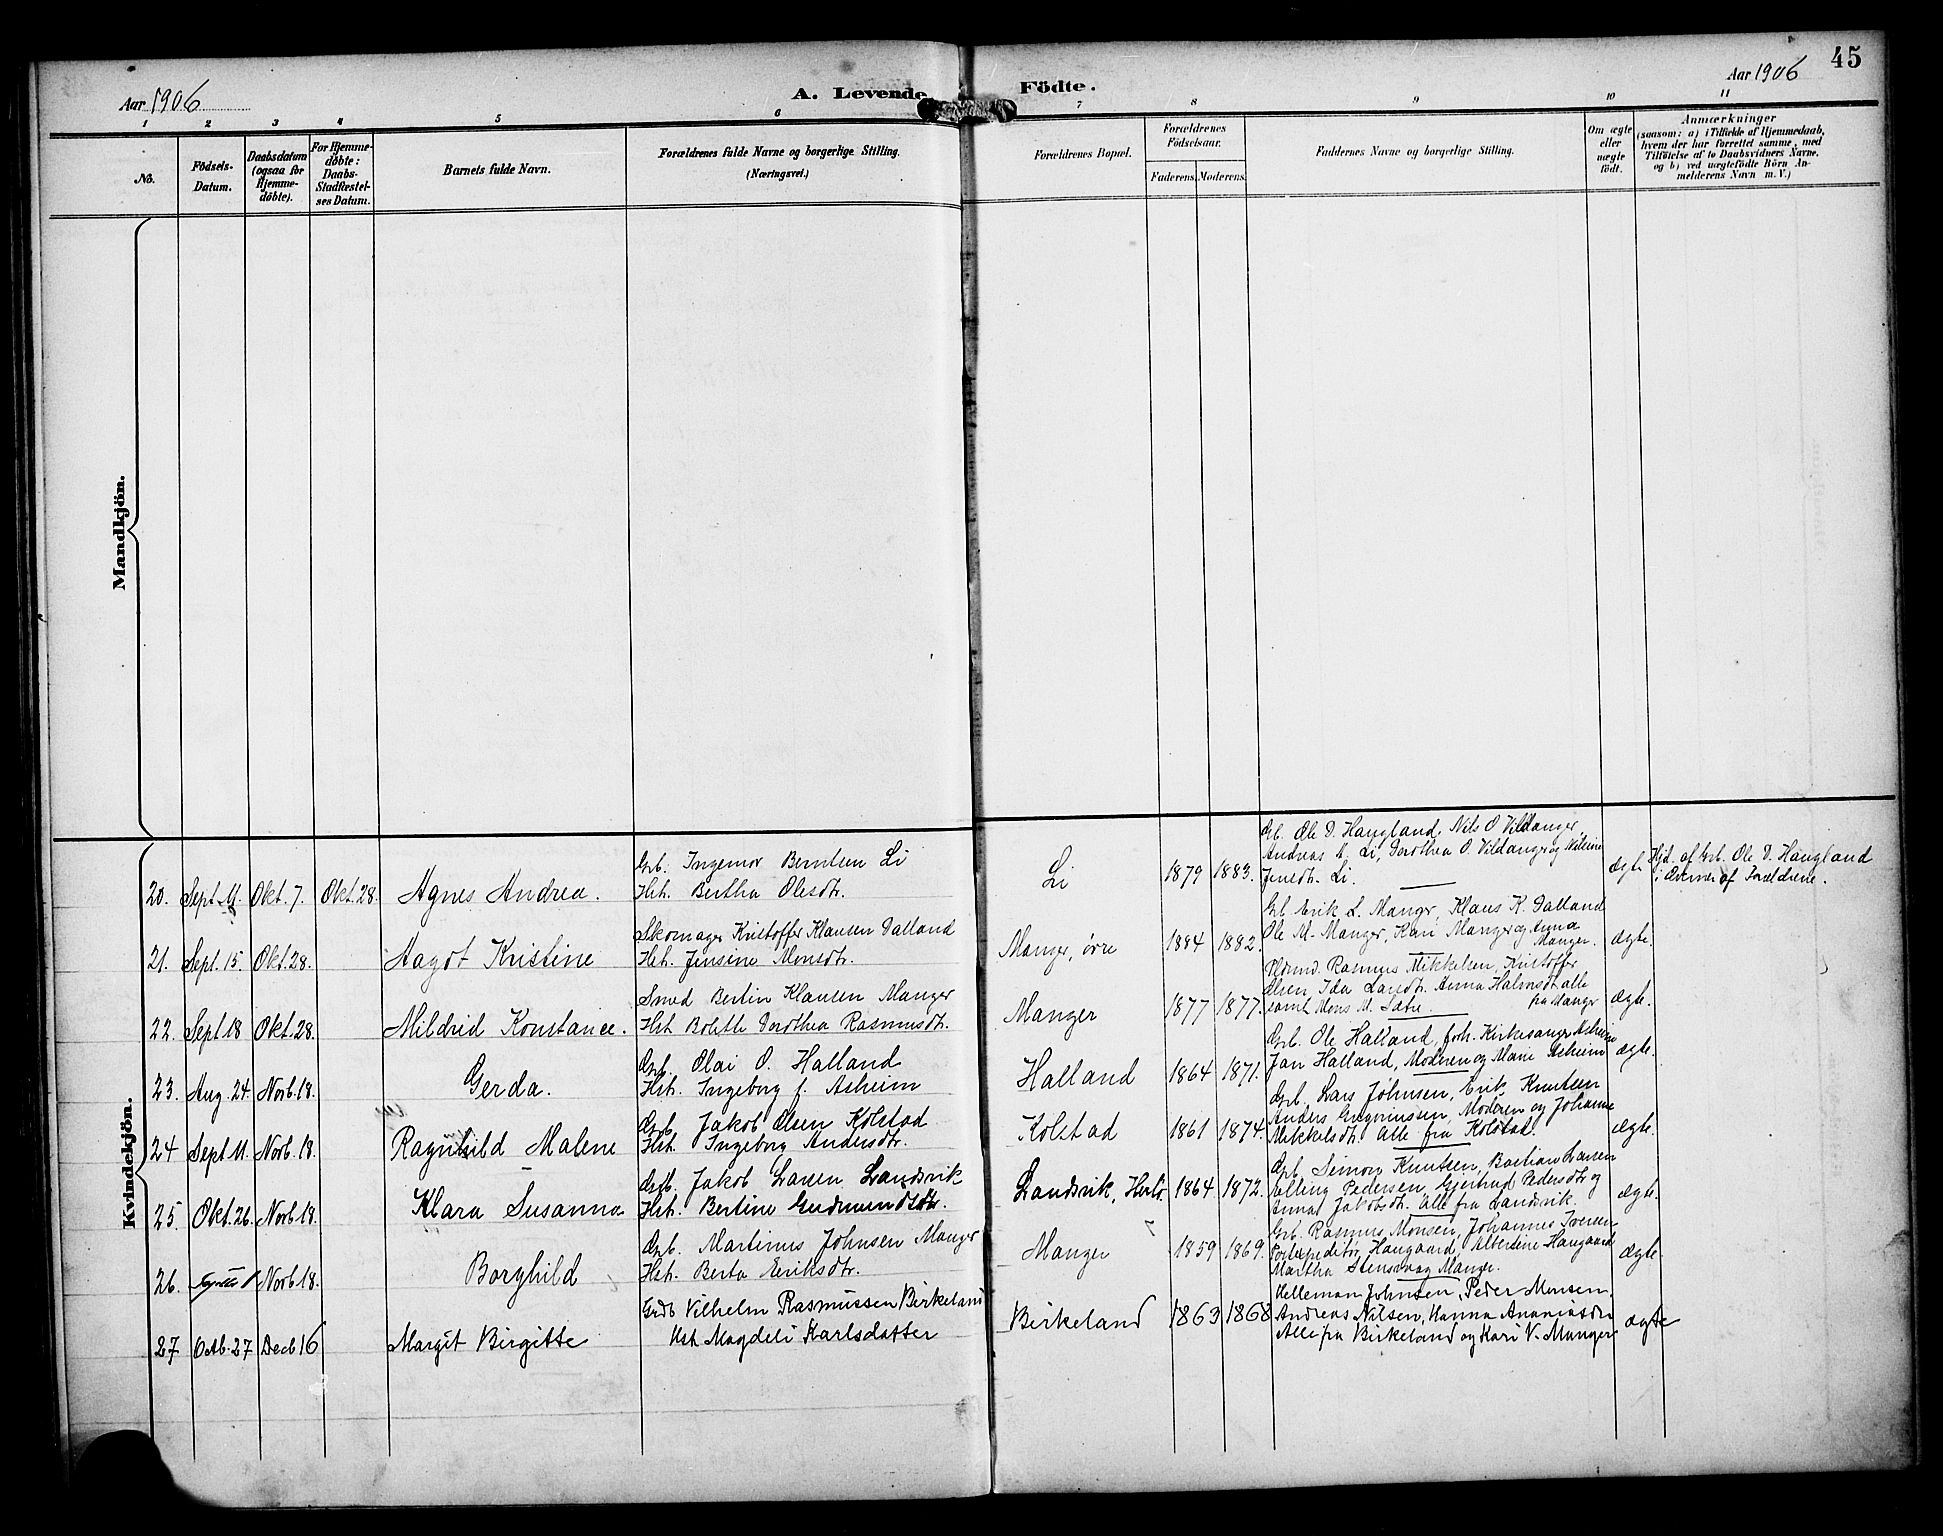 45
Aar 1906
A. Levende
Födte.
Aar 1906
1 2 3 4 5 6 7 8 9 10 11
No.
Födsels-
Datum.
Daabsdatum
(ogsaa for
Hjemme-
döbte).
For Hjemme-
döbte:
Daabs-
Stadfæstel-
ses Datum.
Barnets fulde Navn.
Forældrenes fulde Navne og borgerlige Stilling.
(Næringsvei.)
Forældrenes Bopæl.
Forældrenes
Födselsaar.
Faderens. Moderens.
Faddernes Navne og borgerlige Stilling.
Om ægte
eller
uægte
födt.
Anmærkninger
(saasom: a) i Tilfælde af Hjemmedaab,
hvem der har forrettet samme, med
Tilföielse af to Daabsvidners Navne,
og b) ved uægtefödte Börn An-
melderens Navn m. V.)
Mandkjön.
Kvindekjön.
20. Sept. 11. Okt. 7. Okt. 28. Agnes Andrea.
Grb. Ingemor Berntsen Li
Hst. Bertha Olesdtr.
Li 1879 1883.
Grb. Ole D. Haugland, Nils O Vildanger,
Andreas Li, Dorothea O. Vildanger og
Jensdtr. Li.
ægte
Hjd. af Grb. Ole D. Haugland
i Nærvær af Forældrene.
21. Sept. 15. Okt. 28. Aagot Kristine
Skomager Kristoffer Klausen Dalland
Hst. Jensine Monsdtr.
Manger, övre 1884 1882.
Grb Erik L. Manger, Klaus K. Dalland
Ole M. Manger, Kari Manger og Anna
Manger.
ægte.
22. Sept 18 Okt. 28. Mildrid Konstance.
Smed Bertin Klausen Manger
Hst Bolette Dorothea Rasmusdtr.
Manger 1877 1877.
Rasmus Mikkelsen, Kristoffer
Olsen, Ida Larsdtr. Anna Halmsdtr alle
samt Mons M. Sætre. fra Manger
ægte.
23. Aug. 24. Novb. 18. Gerda.
Grb. Olai O. Halland
Hst. Ingeborg f. Asheim
Halland 1864 1871.
Grb. Ole Halland, forh. Kirkesanger Asheim
Jan Halland, Moderen og Marie Asheim
ægte.
24 Sept. 11. Novb. 18. Ragnhild Malene
Grb. Jakob Olsen Kolstad
Hst. Ingeborg Andersdtr.
Kolstad 1861 1874.
Grb. Lars Johnsen, Erik Knutsen
Anders Moderen og Johanne
Mikkelsdtr. Alle fra Kolstad.
ægte.
25. Okt. 26. Novb. 18. Klara Susanna
Grb. Jakob Larsen Landsvik
Hst. Bertine Gudmundsdtr.
Landsvik, Herlø 1864 1872.
Grb. Simon Knutsen, Bastian Larsen
Elling Pedersen, Gjertrud Pedersdtr og
Anna Jakobsdtr. Alle fra Landsvik.
ægte.
26. Novb. 18. Borghild
Grb. Martinus Johnsen Manger
Hst. Berta Eriksdtr.
Manger 1859 1869.
Grb. Rasmus Monsen, Johannes Iversen
Postexpeditör Haugaard, Albertine Haugaard
Martha Manger.
ægte.
27 Okt. 27 Decb 16 Margit Birgitte
Grdb Vilhelm Rasmussen Birkeland
Hst Magdeli Karlsdatter
Birkeland 1863 1868
Kelleman Johnsen, Peder Monsen,
Andreas Nilsen, Hanna Ananiasdtr
Alle fra Birkeland og Kari V. Manger
ægte